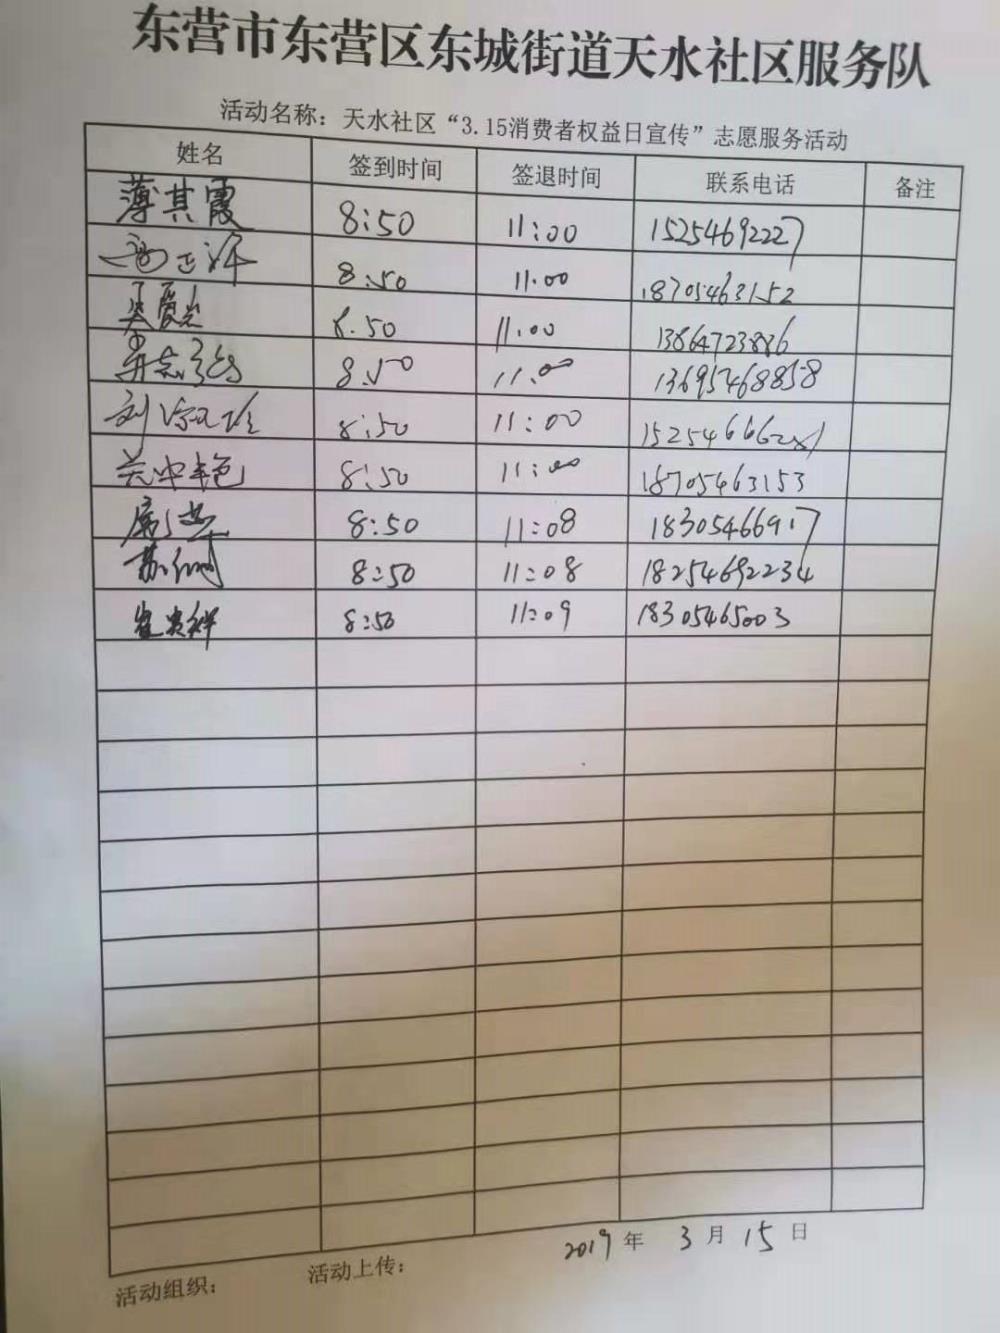 东营市东营区东城街道天水社区服务队
活动名称：天水社区“3.15消费者权益日宣传”志愿服务活动
姓名 签到时间 签退时间 联系电话 备注
薄其霞 8:50 11:00 15254692227
8:50 11:00 18705463152
8.50 11.00 13864723886
8.50 11.00 13695468858
刘 8:50 11:00
8:50 11:00 18705463153
8:50 11:08
苏 8:50 11:08 18254692234
崔贵祥 8:50 11:09 18305465003
2019年 3月15日
活动组织： 活动上传：